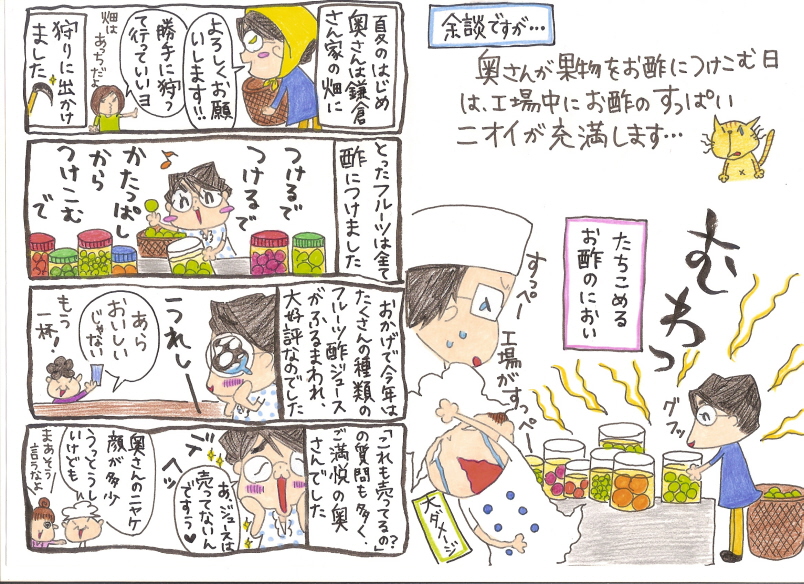 夏のはじめ
奥さんは鎌倉
さん家の畑に
よろしくお願
いします!!
勝手に狩っ
て行っていいヨ
畑は
あっちだよ
狩りに出かけ
ました
とったフルーツは全て
酢につけました
つけるで
つけるで
かたっぱし
から
つけこむ
で
おかげで今年は
たくさんの種類の
フルーツ酢ジュース
がふるまわれ、
大好評なのでした
うれしー
あら
おいしい
じゃない
もう
一杯!
「これも売ってるの」?
の質問も多く、
ご満悦の奥
さんでした
あ、ジュースは
売ってないん
ですぅ♥
デヘッ
奥さんのニヤケ
顔が多少
うっとうし
いけども
まあそう
言うなよ
余談ですが…
奥さんが果物をお酢につけこむ日
は、工場中にお酢のすっぱい
ニオイが充満します…
たちこめる
お酢のにおい
むわっ
グフッ
すっぺー
工場がすっぺー
大ダメージ